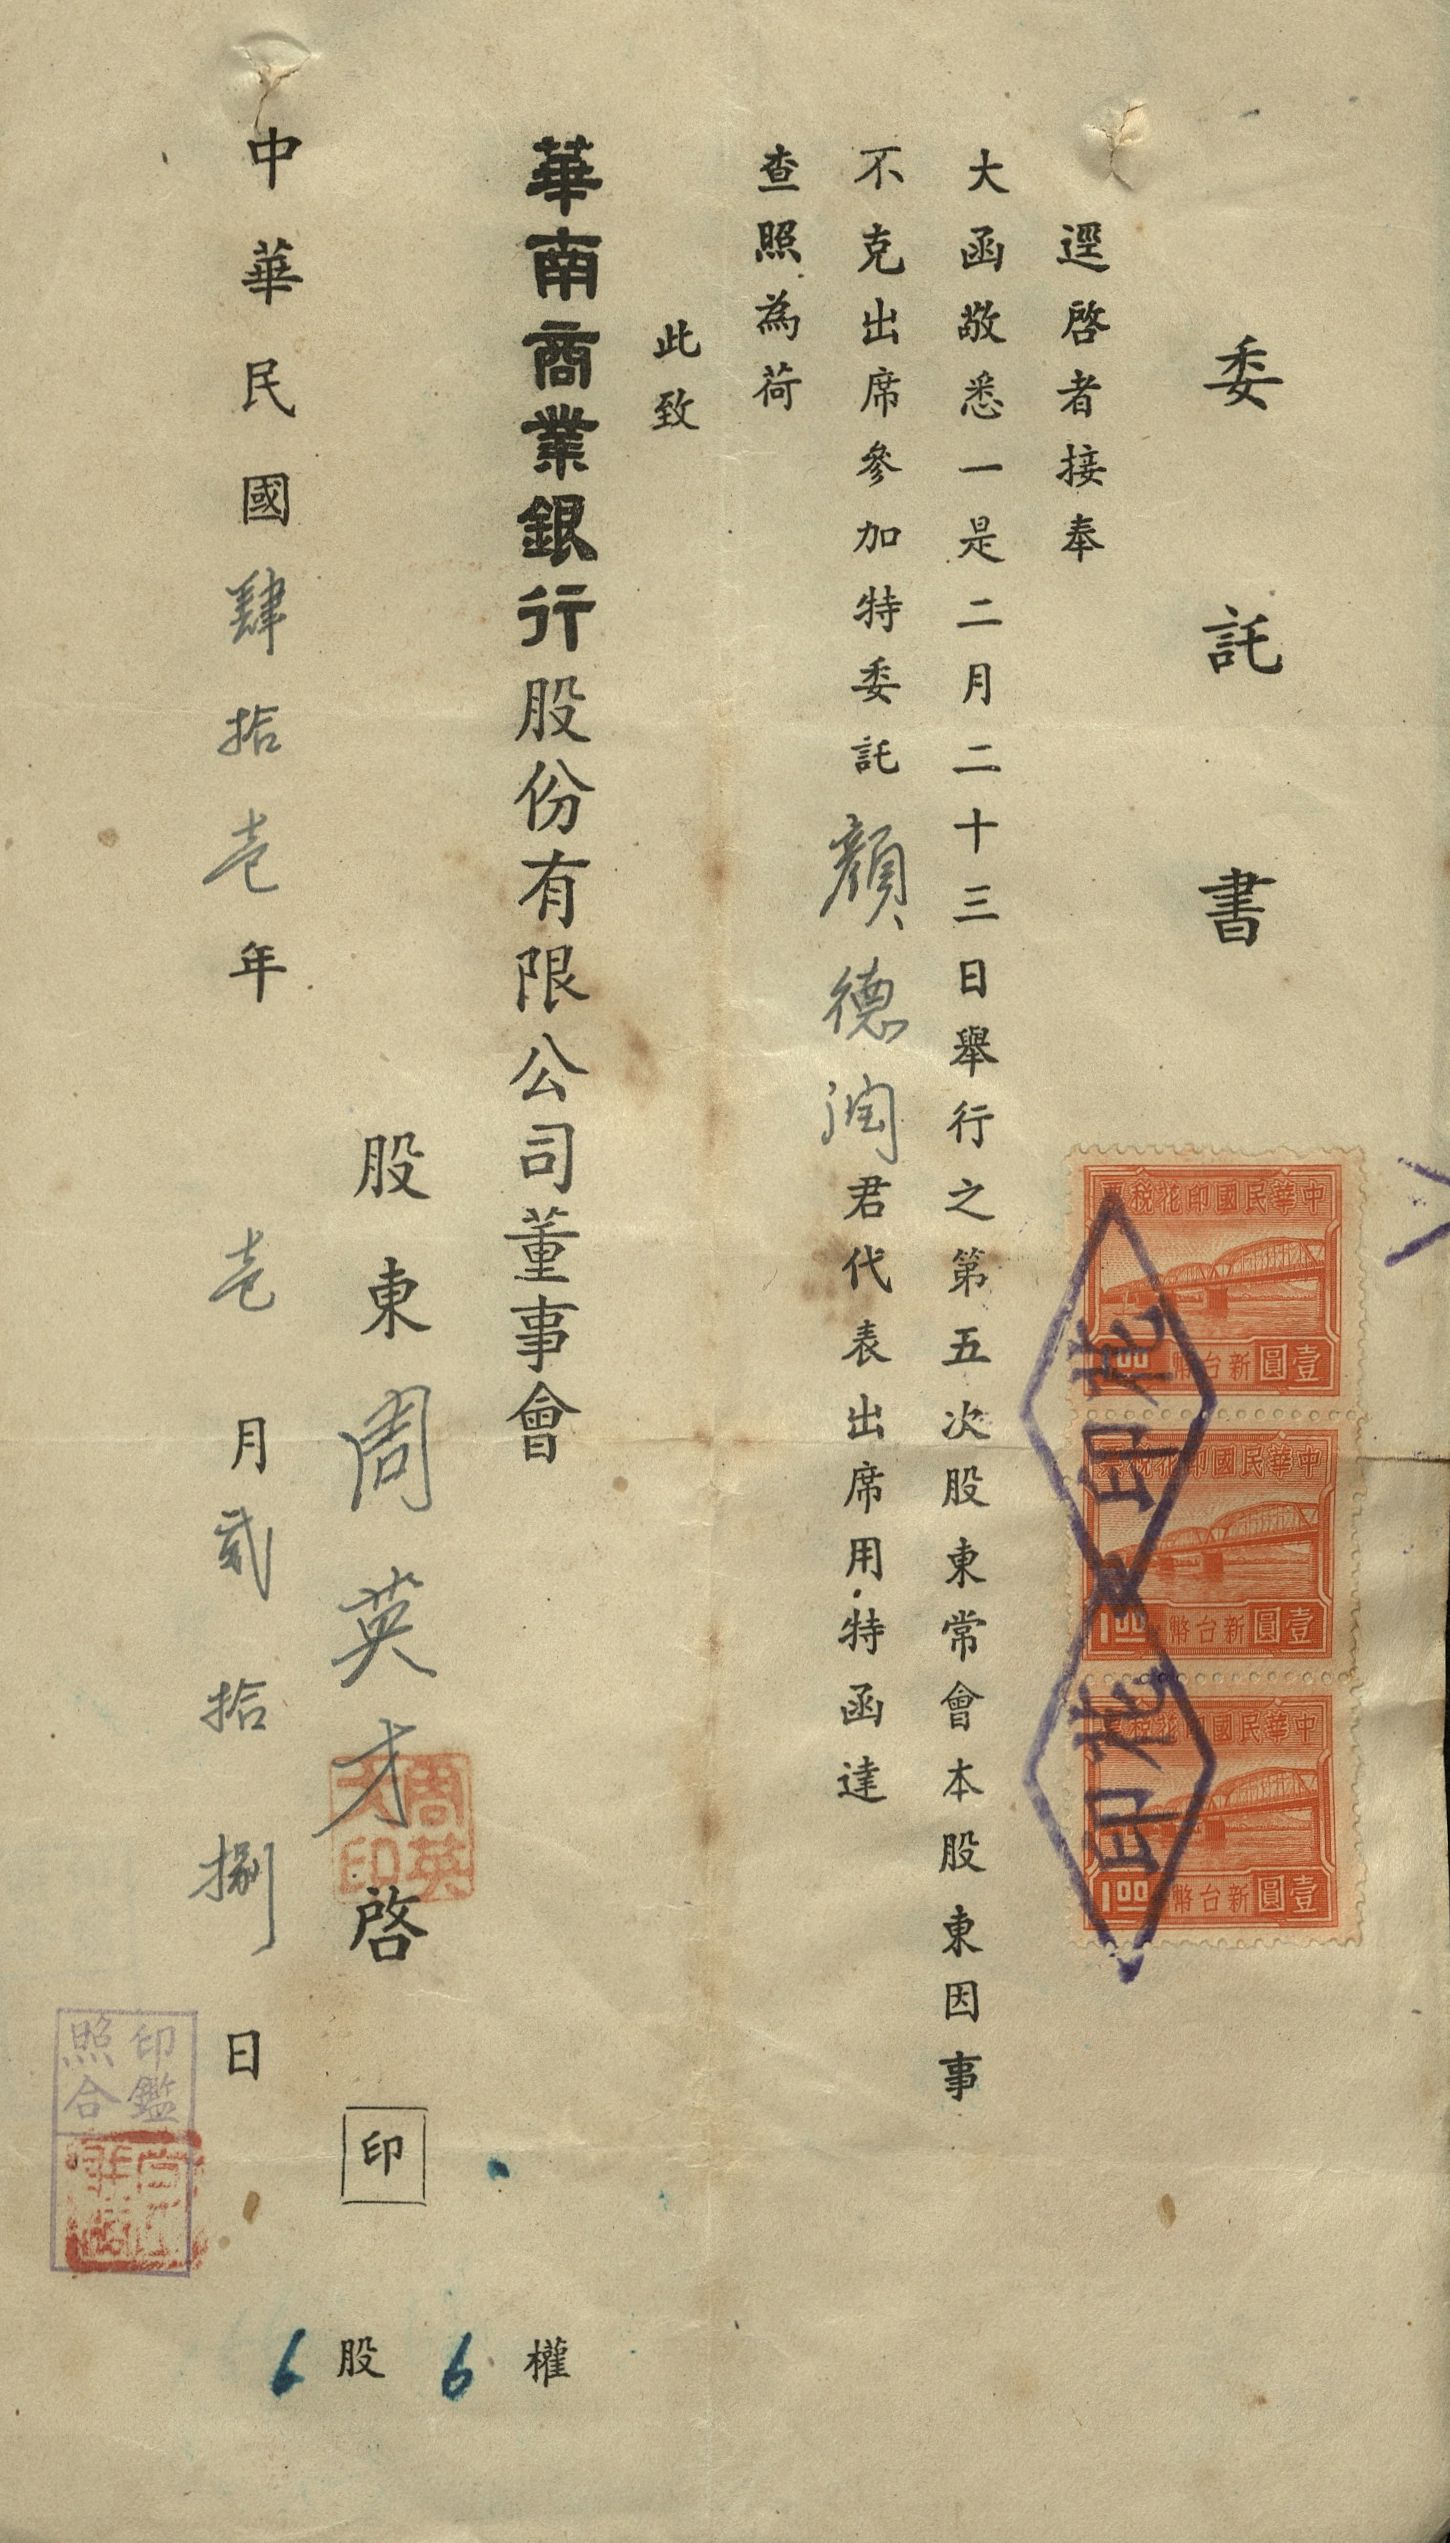 委託書
逕啓者接奉
大函敬悉一是二月二十三日舉行之第五次股東常會本股東因事
不克出席參加特委託顏德潤君代表出席用特函達
查照為荷
此致
華南商業銀行股份有限公司董事會
股東周英才啓 印
中華民國肆拾壹年壹月貳拾捌日
6股6權
中華民國印花稅票
1.00 新台幣壹圓
中華民國印花稅票
1.00 新台幣壹圓
中華民國印花稅票
1.00 新台幣壹圓
印花
印花
周英
才印
印鑑
照合